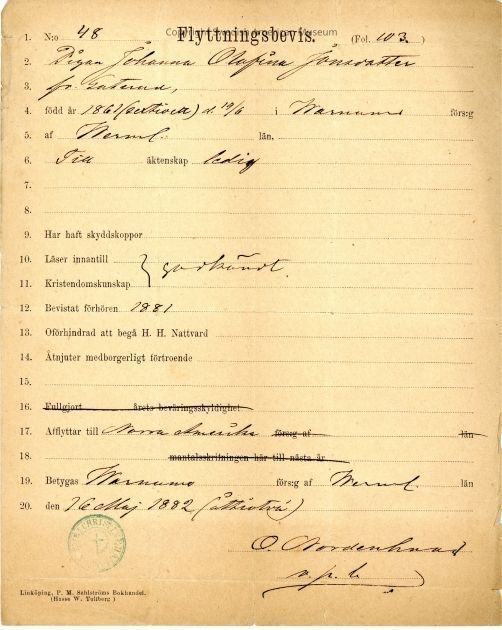 Flyttningsbevis.
1. N:o 48 (Fol. 103.)
2. Pigan Johanna Olofina Jonsdotter
3. fr.
4. född år 1861 d. 19/6 i Warnums förs:g
5. af Werml. län.
6. Till äktenskap ledig
7.
8.
9. Har haft skyddskoppor
10. Läser innantill
godkändt.
11. Kristendomskunskap
12. Bevistat förhören 1881
13. Oförhindrad att begå H. H. Nattvard
14. Åtnjuter medborgerligt förtroende
15.
16. Fullgjort årets beväringsskyldighet
17. Afflyttar till Norra Amerika förs:g af län
18. mantalsskrifningen här till nästa år
19. Betygas Warnums förs:g af Werml. län
20. den 16 Maj 1882 (åttiotvå)
O.
v. p. l.
Linköping, P. M. Sahlströms Bokhandel.
(Hasse W. Tullberg.)